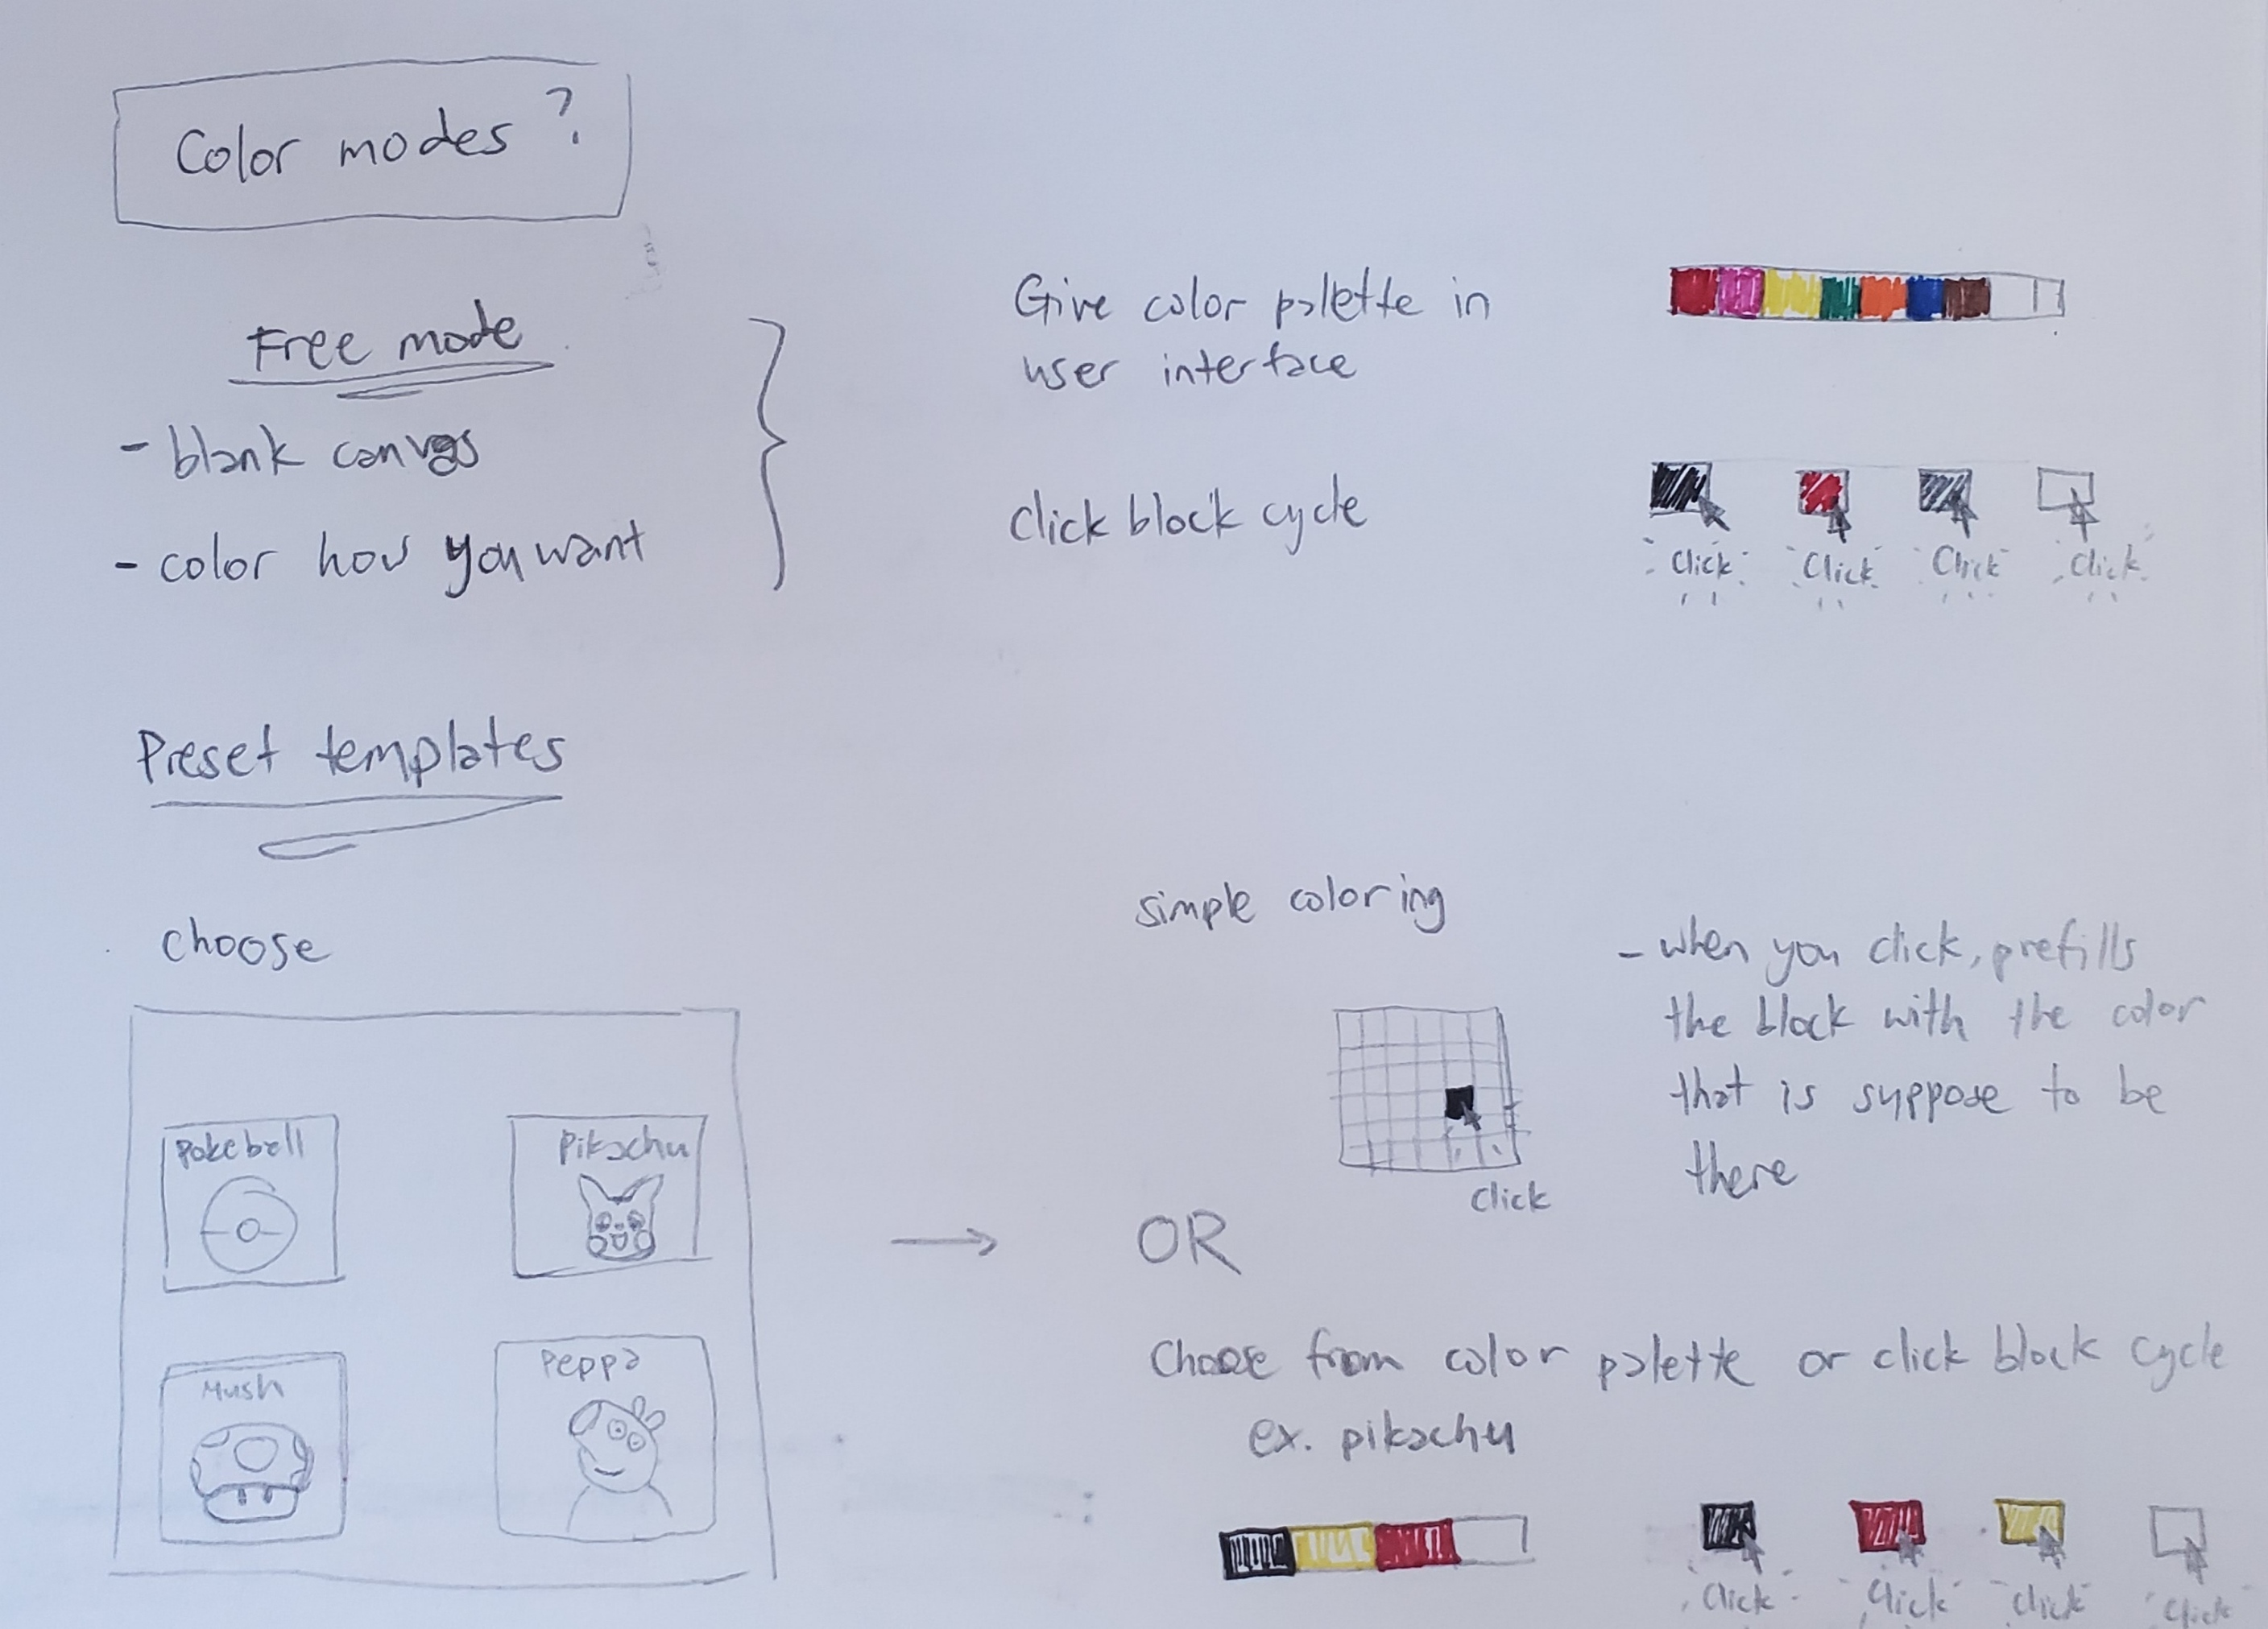 Color modes ?
Free mode
- blank canvas
- color how you want
Give color palette in
user interface
Click block cycle
Click
Click
Click
Click
Preset templates
choose
Pokeball
Pikachu
Mush
Peppa
simple coloring
- when you click, prefills
the block with the color
that is suppose to be
there
Click
OR
Choose from color palette or click block cycle
ex. pikachu
Click
Click
Click
Click